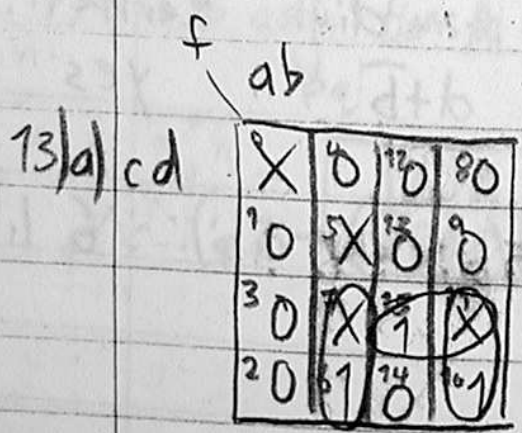 f
ab
13)a) cd
0 X 4 0 12 0 8 0
1 0 5 X 13 0 9 0
3 0 7 X 15 1 11 X
2 0 6 1 14 0 10 1